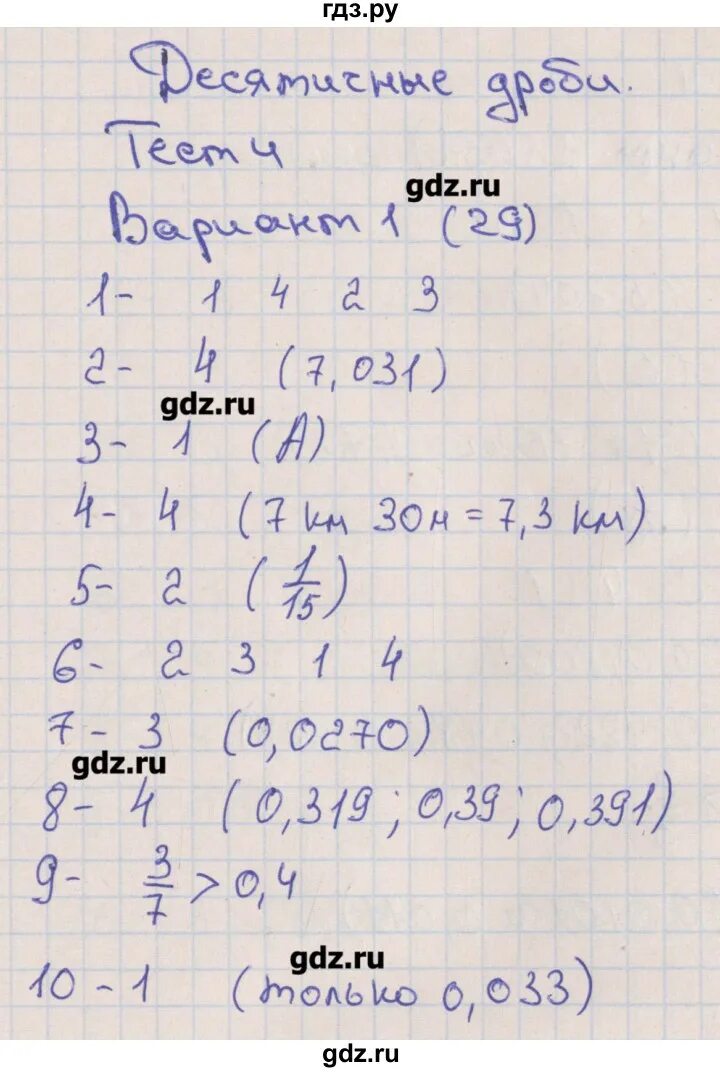 гдз.ру
Десятичные дроби.
Тест 4
gdz.ru
Вариант 1 (29)
1- 1 4 2 3
2- 4 (7,031)
gdz.ru
3- 1 (А)
4- 4 (7 км 30м = 7,3 км)
5- 2 (1/15)
6- 2 3 1 4
7- 3 (0,0270)
gdz.ru
8- 4 (0,319; 0,39; 0,391)
9- 3/7 > 0,4
gdz.ru
10-1 (только 0,033)
gdz.ru